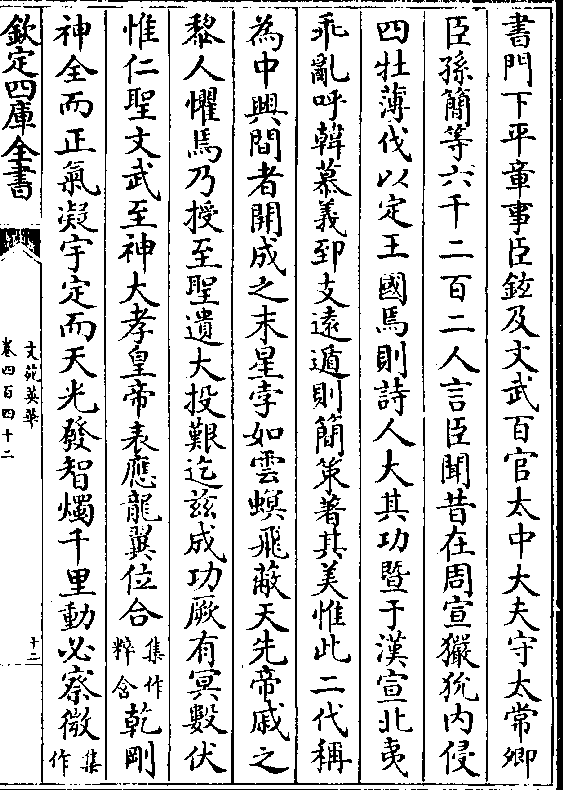 書門下平章事臣鉉及文武百官太中大夫守太常卿
臣孫簡等六千二百二人言臣聞昔在周宣玁狁内侵
四牡薄伐以定王國焉則詩人大其功暨于漢宣北夷
乖亂呼韓慕義郅支遠遁則簡策著其美惟此二代稱
為中興間者開成之末星孛如雲螟飛蔽天先帝戚之
黎人懼焉乃授至聖遺大投艱迄兹成功厥有冥數伏
惟仁聖文武至神大孝皇帝表應龍翼位合集作粹含乾剛
神全而正氣凝宇定而天光發智燭千里動必察微集作
欽定四庫全書
文苑英華
卷四百四十二
十二